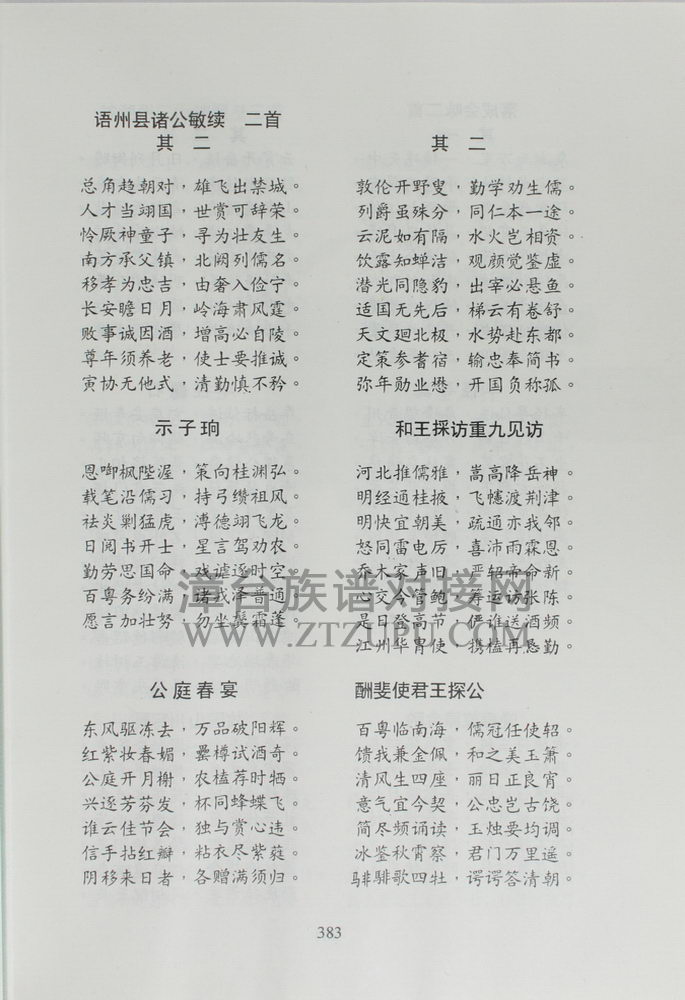 语州县诸公敏续 二首
其 二
总角趋朝对，雄飞出禁城。
人才当翊国，世赏可辞荣。
怜厥神童子，寻为壮友生。
南方承父镇，北阙列儒名。
移孝为忠吉，由奢入俭宁。
长安瞻日月，岭海肃风霆。
败事诚因酒，增高必自陵。
尊年须养老，使士要推诚。
寅协无他式，清勤慎不矜。
示子珦
恩啣枫陛渥，策向桂渊弘。
载笔沿儒习，持弓缵祖风。
祛炎剿猛虎，溥德翊飞龙。
日阅书开士，星言驾劝农。
勤劳思国命，戏谑逐时空。
百粤务纷满，诸我泽普通。
愿言加壮努，勿坐鬓霜蓬。
公庭春宴
东风驱冻去，万品破阳辉。
红紫妆春媚，罍樽试酒奇。
公庭开月榭，农榼荐时牺。
兴逐芳芬发，杯同蜂蝶飞。
谁云佳节会，独与赏心违。
信手拈红瓣，粘衣尽紫蕤。
阴移来日者，各赠满须归。
其 二
敦伦开野叟，勤学劝生儒。
列爵虽殊分，同仁本一途。
云泥如有隔，水火岂相资。
饮露知蝉洁，观颜觉鉴虚。
潜光同隐豹，出宰必悬鱼。
适国无先后，梯云有卷舒。
天文廻北极，水势赴东都。
定策参耆宿，输忠奉简书。
弥年勋业懋，开国负称孤。
和王採访重九见访
河北推儒雅，嵩高降岳神。
明经通桂掖，飞幰渡荆津。
明快宜朝美，疏通亦我邻。
怒同雷电厉，喜沛雨霖恩。
乔木家声旧，严轺帝命新。
心交今管鲍，筹运访张陈。
是日登高节，俨谁送酒频。
江州华胄使，携榼再恳勤。
酬斐使君王探公
百粤临南海，儒冠任使轺。
馈我兼金佩，和之美玉箫。
清风生四座，丽日正良宵。
意气宜今契，公忠岂古饶。
简尽频诵读，玉烛要均调。
冰鉴秋霄察，君门万里遥。
騑騑歌四牡，谔谔答清朝。
383
漳台族谱对接网
WWW.ZTZUPU.COM